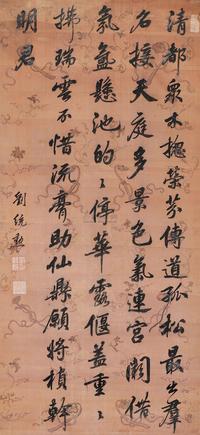 清都眾木摠榮芬傳道孤松最出羣
名接天庭多景色氣連宮闕借
氛氳懸池的〻停華露偃蓋重〻
拂瑞雲不惜流膏助仙鼎願將楨幹
明君
劉統勳